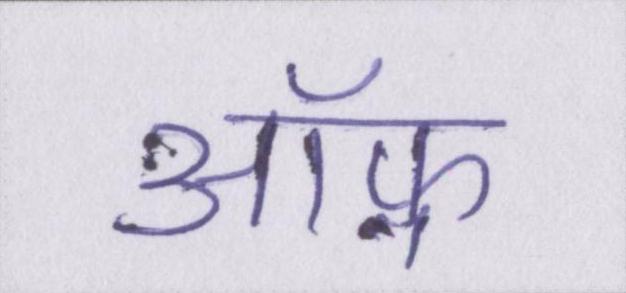 ऑफ़